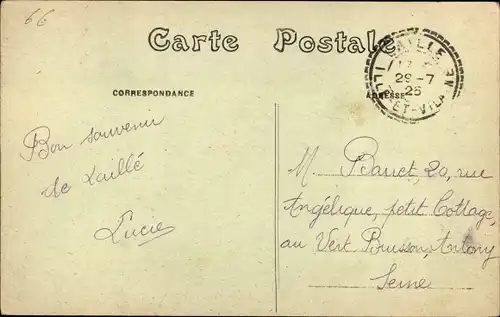 66
Carte Postale
CORRESPONDANCE
ADRESSE
LAILLÉ
29-7
25
ILLE-ET-VILAINE
Bon souvenir
de Laillé
Lucie
M. Barret, 20, rue
Angélique, petit Cottage,
au Vert Buisson, Antony
Seine